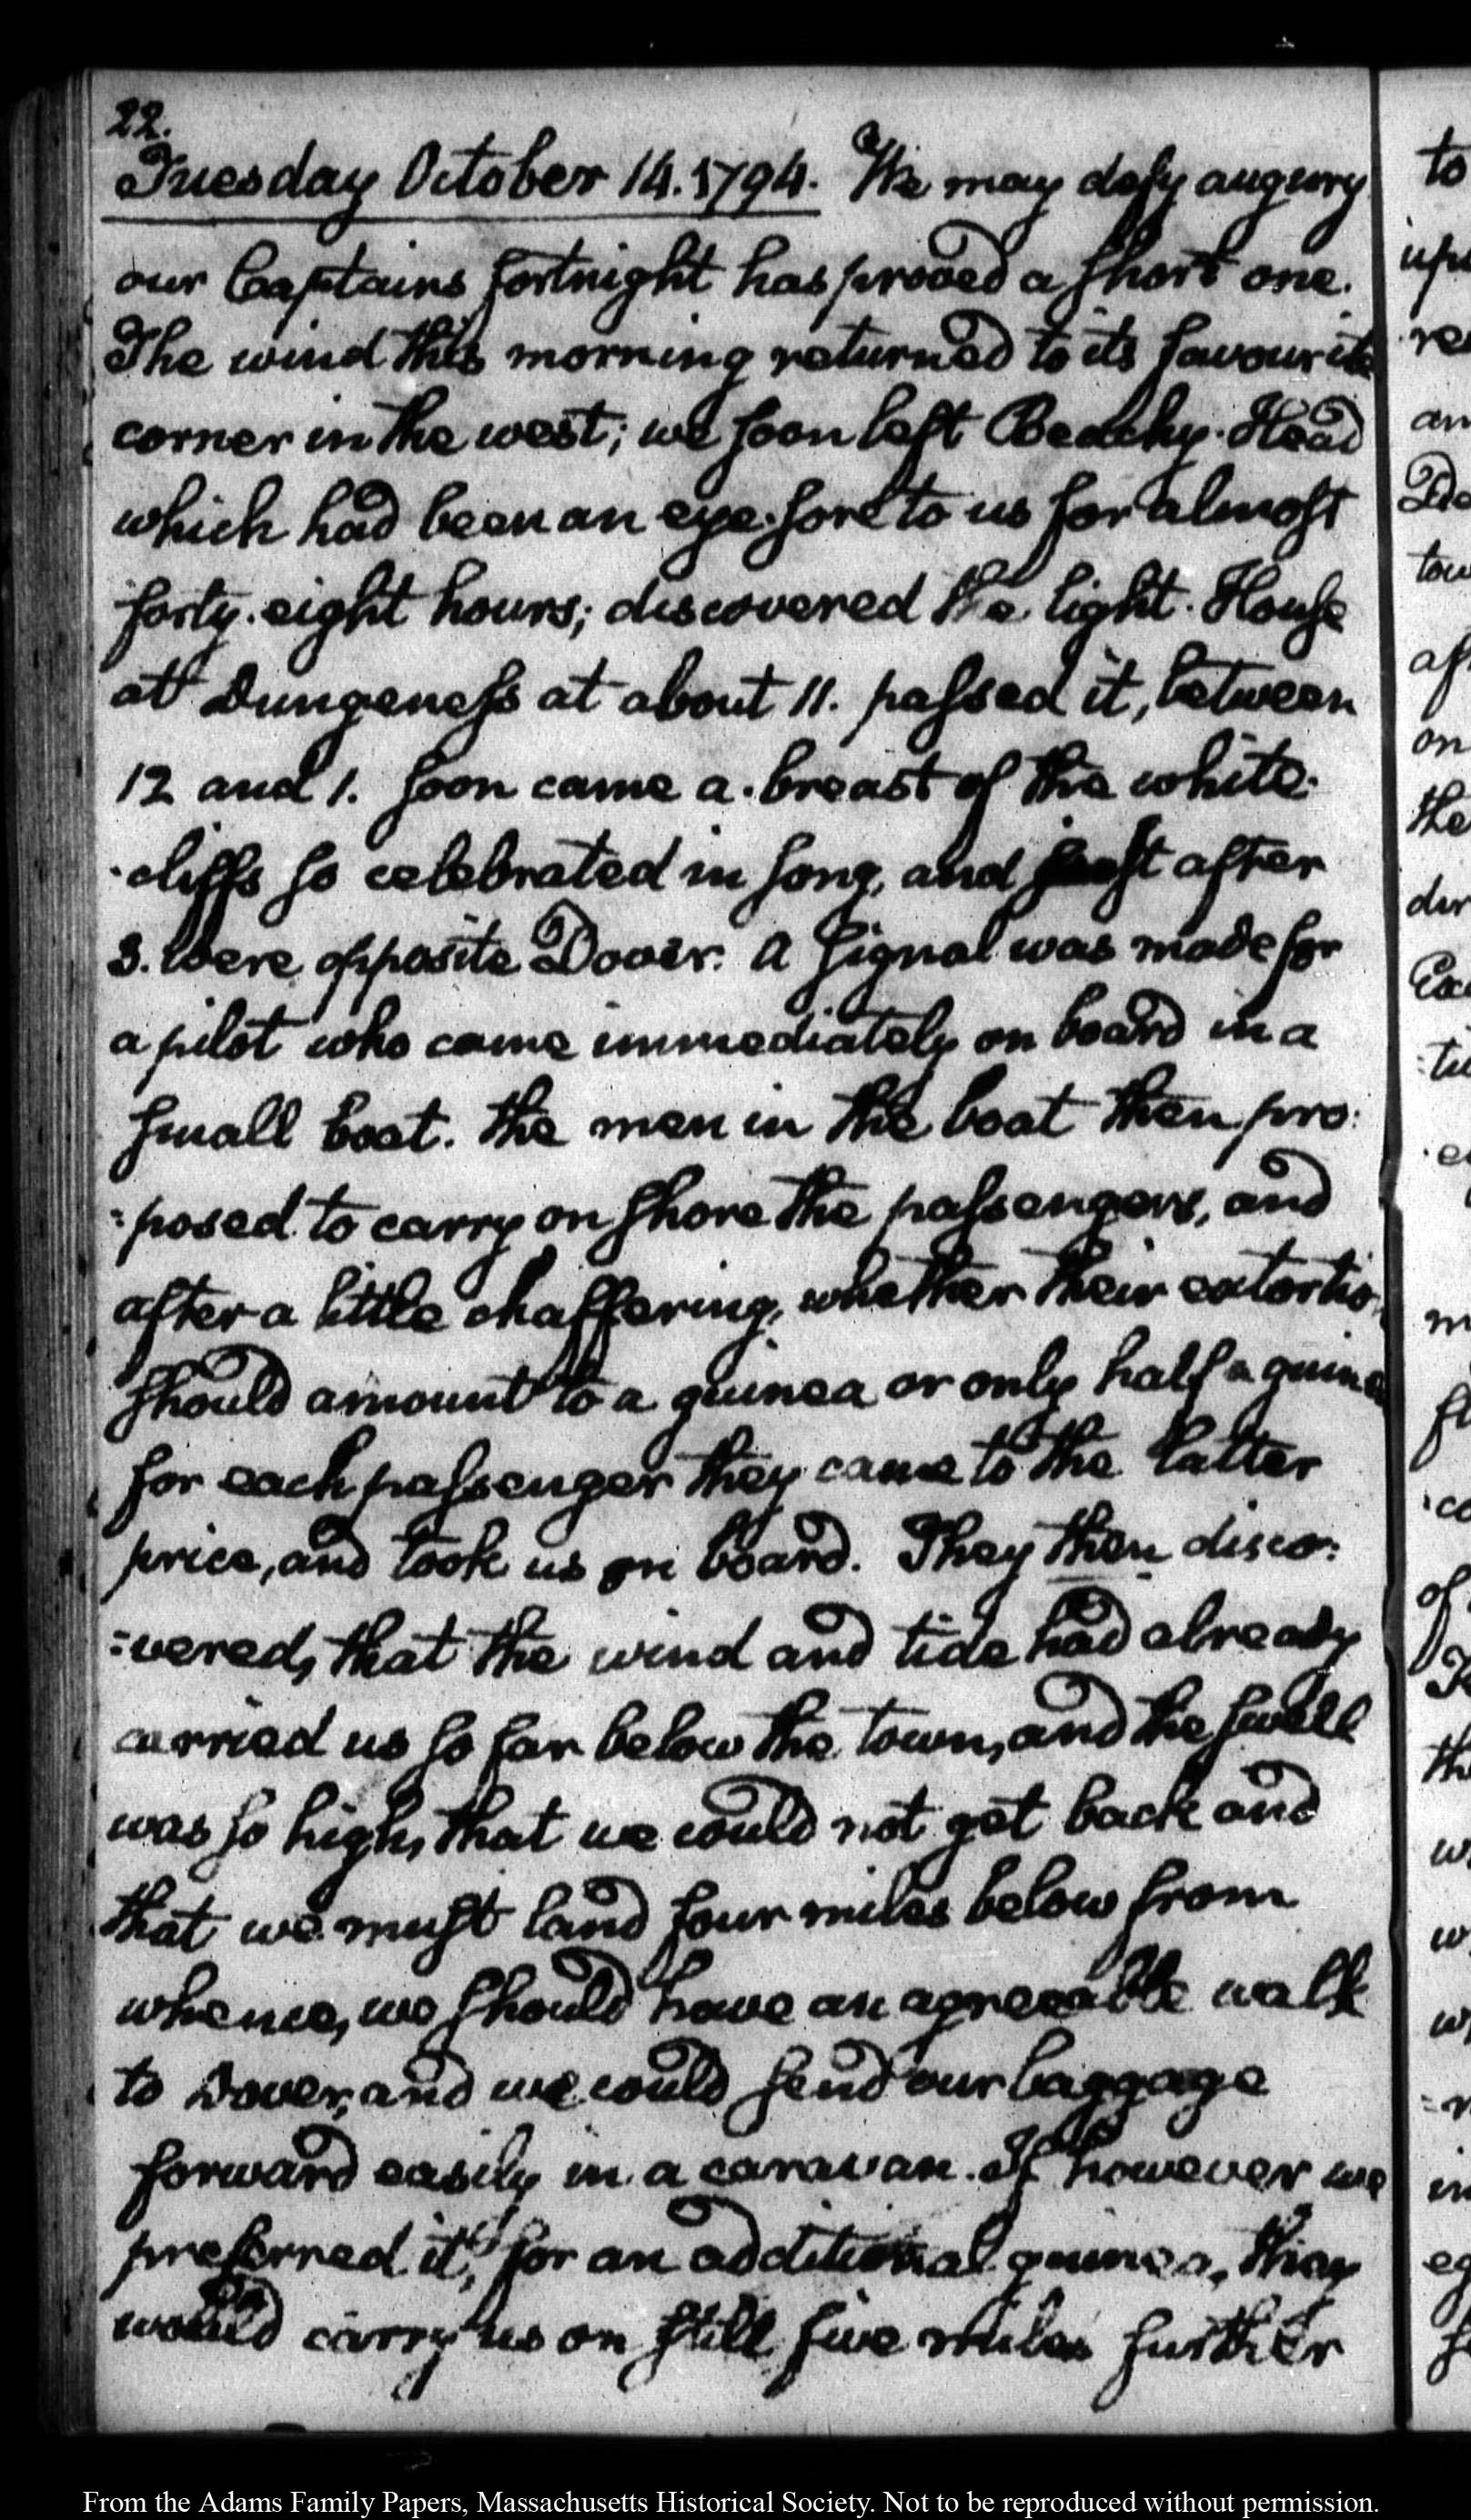 22.
Tuesday October 14. 1794. We may defy augury
our Captains fortnight has proved a short one.
The wind this morning returned to its favourite
corner in the west; we soon left Beachy-Head
which had been an eye-sore to us for almost
forty-eight hours; discovered the light-House
at Dungeness at about 11. passed it, between
12 and 1. soon came a-breast of the white-
-cliffs so celebrated in song, and just after
3. were opposite Dover. A signal was made for
a pilot who came immediately on board in a
small boat. The men in the boat then pro:
:posed to carry on shore the passengers, and
after a little chaffering, whether their extortion
should amount to a guinea or only half a guinea
for each passenger they came to the latter
price, and took us on board. They then disco:
:vered, that the wind and tide had already
carried us so far below the town, and the swell
was so high, that we could not get back and
that we must land four miles below from
whence, we should have an agreeable walk
to Dover, and we could send our baggage
forward easily in a caravan. If however we
preferred it, for an additional guinea, they
would carry us on still five miles further
to
ups
re
an
De
tow
af
on
the
dir
Exc
:tu
m
fl
co
of
th
w
w
w
in
eg
From the Adams Family Papers, Massachusetts Historical Society. Not to be reproduced without permission.